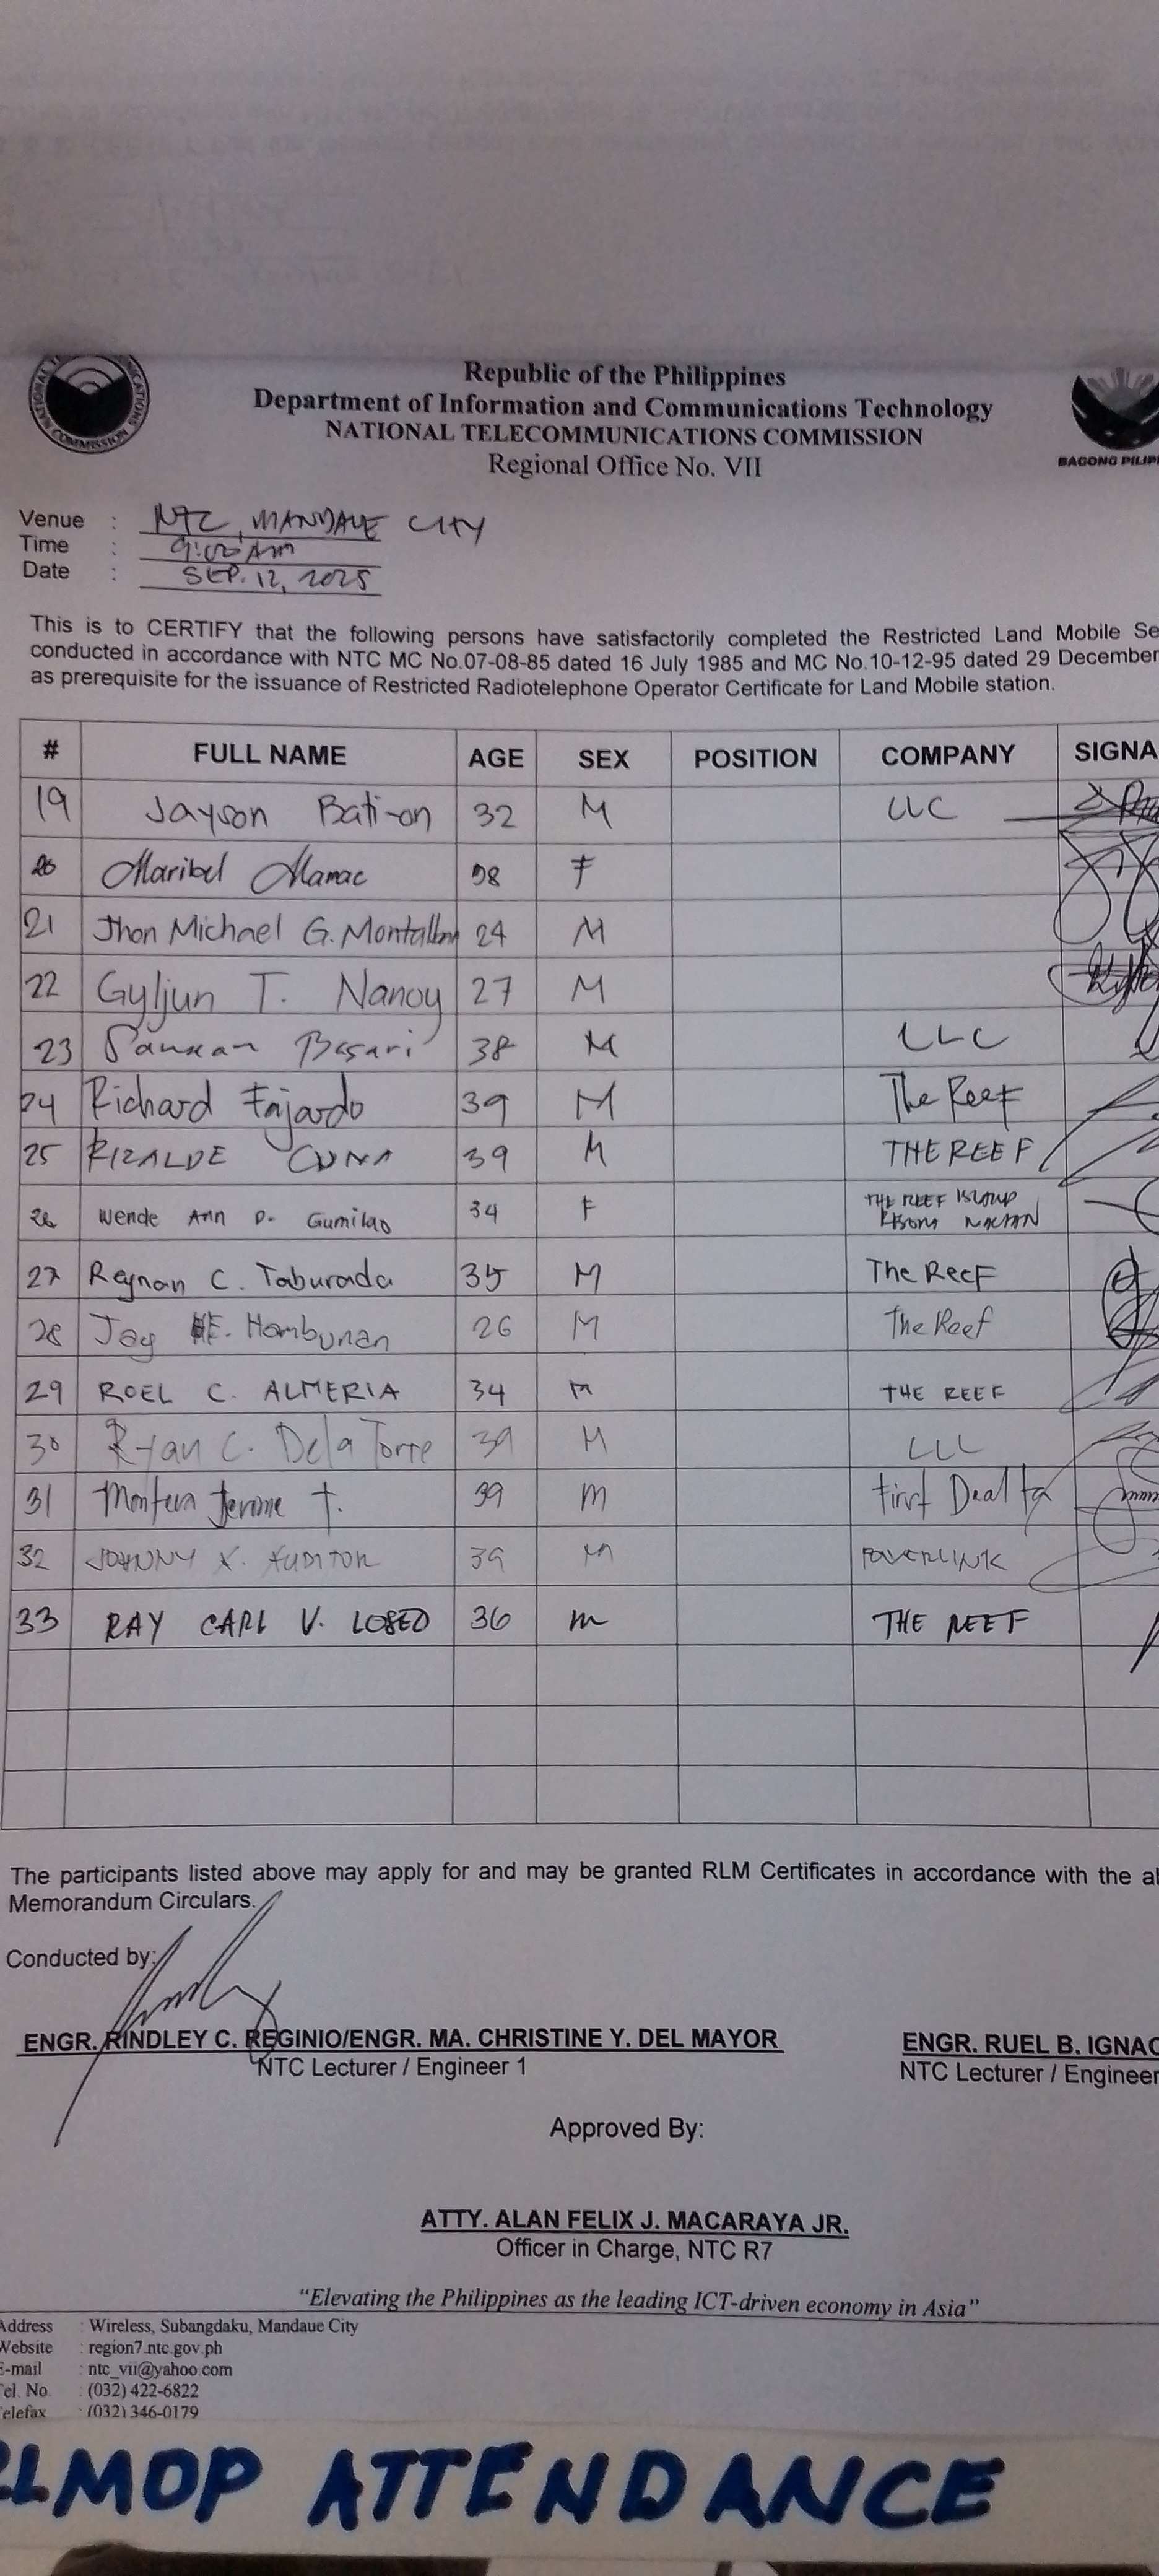 Republic of the Philippines
Department of Information and Communications Technology
NATIONAL TELECOMMUNICATIONS COMMISSION
Regional Office No. VII
COMMISSION
BAGONG PILIPI
Venue : NTC, MANDAUE CITY
Time : 9:00 AM
Date : SEP. 12, 2025
This is to CERTIFY that the following persons have satisfactorily completed the Restricted Land Mobile Se
conducted in accordance with NTC MC No.07-08-85 dated 16 July 1985 and MC No.10-12-95 dated 29 December
as prerequisite for the issuance of Restricted Radiotelephone Operator Certificate for Land Mobile station.
# FULL NAME AGE SEX POSITION COMPANY SIGNA
19 Jayson Bati-on 32 M LLC
20 Maribel Mamac F
21 Jhon Michael G. Montalban 24 M
22 Gyljun T. Nanoy 27 M
23 Basari 38 M LLC
24 Richard Fajardo 39 M The Reef
25 RIZALDE CUNA 39 M THE REEF
26 Wende Ann D. Gumilao 34 F THE REEF ISLAND
27 Reynan C. Taburada 35 M The Reef
28 Jay E. Hambunan 26 M The Reef
29 ROEL C. ALMERIA 34 M THE REEF
30 Ryan C. Dela Torre 39 M LLC
31 Jerome T. 39 m First Deal
32 JOHNNY 39 M POWERLINK
33 RAY CARL V. LOSED 36 m THE REEF
The participants listed above may apply for and may be granted RLM Certificates in accordance with the ab
Memorandum Circulars.
Conducted by:
ENGR. RINDLEY C. REGINIO/ENGR. MA. CHRISTINE Y. DEL MAYOR ENGR. RUEL B. IGNAC
NTC Lecturer / Engineer 1 NTC Lecturer / Engineer
Approved By:
ATTY. ALAN FELIX J. MACARAYA JR.
Officer in Charge, NTC R7
“Elevating the Philippines as the leading ICT-driven economy in Asia”
Address : Wireless, Subangdaku, Mandaue City
Website : region7.ntc.gov.ph
E-mail : ntc_vii@yahoo.com
Tel. No. : (032) 422-6822
Telefax : (032) 346-0179
RLMOP ATTENDANCE